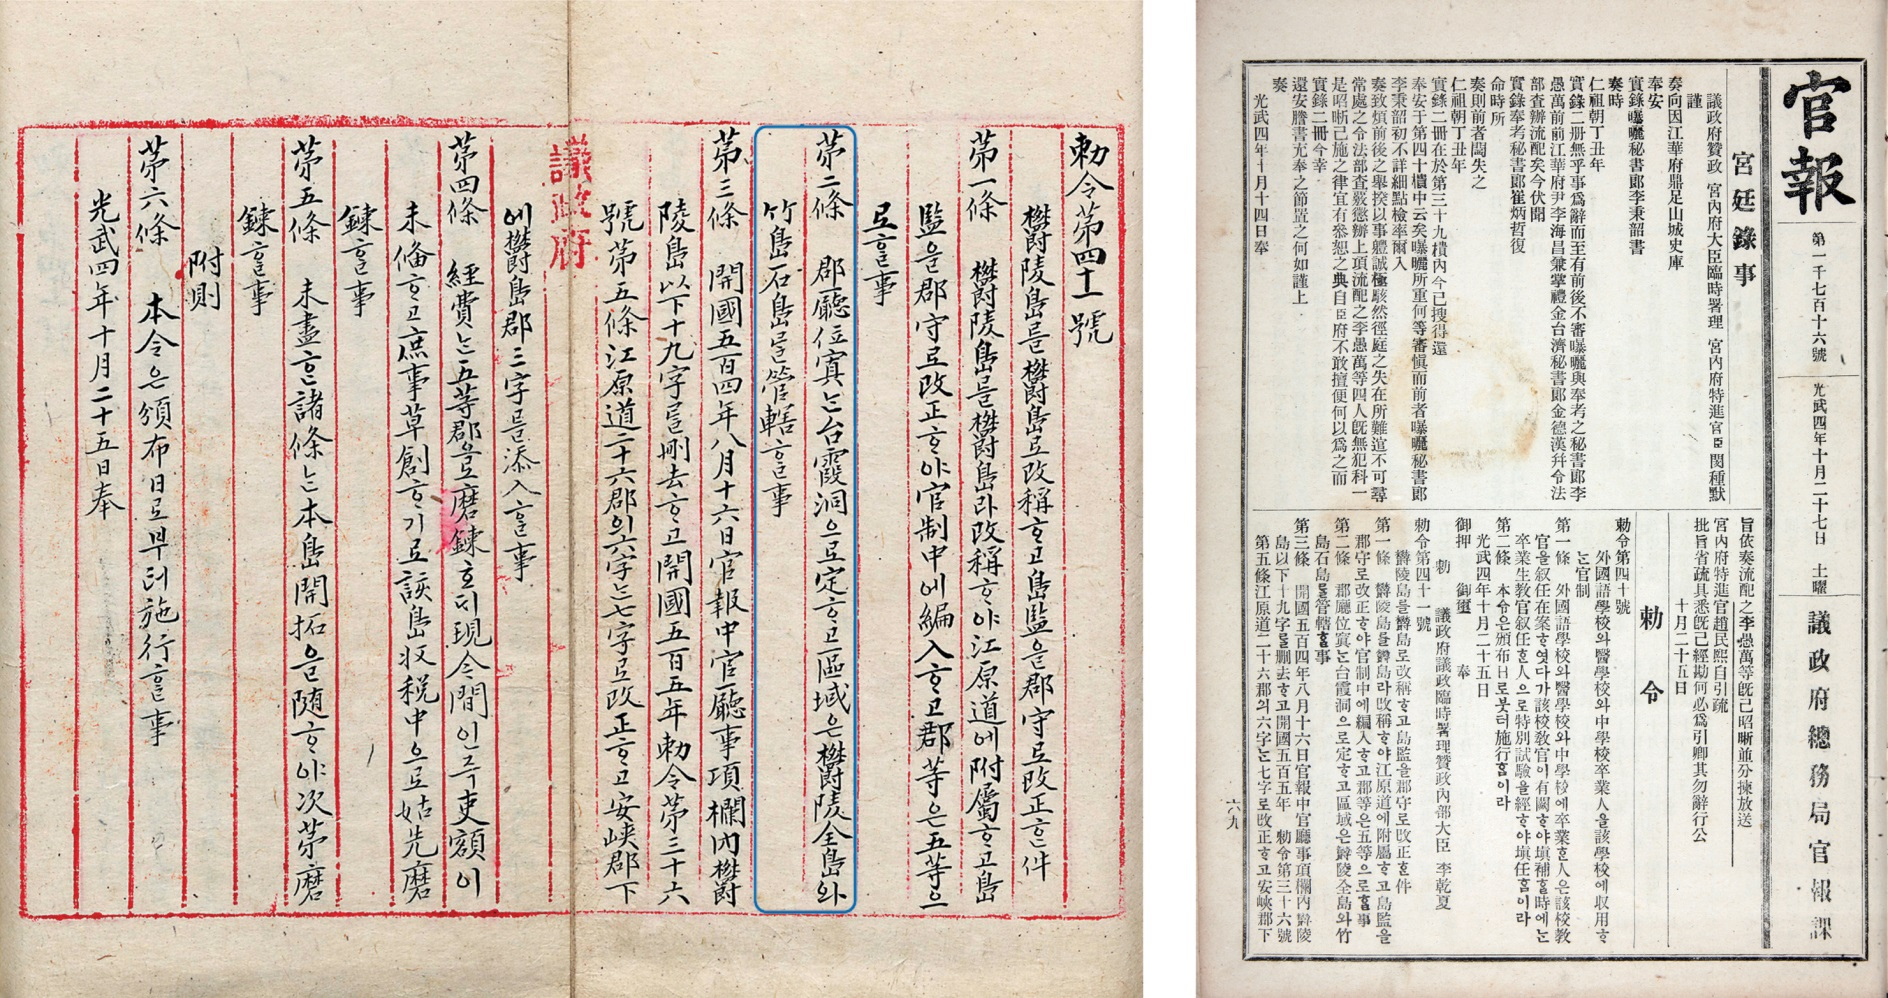 勅令第四十一號
欝陵島를欝島로改稱하고島監을郡守로改正한件
第一條 欝陵島를欝島라改稱하야江原道에附屬하고島
監을郡守로改正하야官制中에編入하고郡等은五等으
로할事
第二條 郡廳位寘는台霞洞으로定하고區域은欝陵全島와
竹島石島를管轄할事
第三條 開國五百四年八月十六日官報中官廳事項欄內欝
陵島以下十九字를刪去하고開國五百五年勅令第三十六
號第五條江原道二十六郡의六字는七字로改正하고安峽郡下
議政府
에欝島郡三字를添入할事
第四條 經費는五等郡으로磨鍊호되現今間인즉吏額이
未備하고庶事草創하기로該島收稅中으로姑先磨
鍊할事
第五條 未盡한諸條는本島開拓을随하야次第磨
鍊할事
附則
第六條 本令은頒布日로부터施行할事
光武四年十月二十五日奉
官報
第一千七百十六號
光武四年十月二十七日 土曜
議政府總務局官報課
宮廷錄事
議政府贊政 宮內府大臣臨時署理 宮內府特進官臣 閔種默
謹
奏向因江華府鼎足山城史庫
奉安
實錄曝曬秘書郞李秉韶書
奏時
仁祖朝丁丑年
實錄二冊無乎事爲辭而至有前後不審曝曬與奉考之秘書郞李
愚萬前前江華府尹李海昌兼掌禮金台濟秘書郞金德漢幷令法
部査辦流配矣今伏聞
實錄奉考秘書郞崔炳哲復
命時所
奏則前者閪失之
仁祖朝丁丑年
實錄二冊在於第三十九樻內今已搜得還
奉安于第四十樻中云矣曝曬所重何等審愼而前者曝曬秘書郞
李秉韶初不詳細點檢率爾入
奏致煩前後之擧揆以事軆誠極駭然徑庭之失在所難逭不可尋
常處之令法部査覈懲辦上項流配之李愚萬等四人旣無犯科一
是昭晣已施之律宜有叅恕之典自臣府不敢擅便何以爲之而
實錄二冊今幸
還安謄書尤奉之節置之何如謹上
奏
光武四年十月十四日奉
旨依奏流配之李愚萬等旣已昭晣並分揀放送
宮內府特進官趙民熙自引疏
批旨省疏具悉旣已經勘何必爲引卿其勿辭行公
十月二十五日
勅令
勅令第四十號
外國語學校와醫學校와中學校卒業人을該學校에收用하
는官制
第一條 外國語學校와醫學校와中學校에卒業한人은該校敎
官을叙任在案하엿다가該校敎官이有闕하야塡補할時에는
卒業生敎官叙任한人으로特別試驗을經하야塡任함이라
第二條 本令은頒布日로붓터施行함이라
光武四年十月二十五日
御押 御璽 奉
勅 議政府議政臨時署理贊政內部大臣 李乾夏
勅令第四十一號
欝陵島를欝島로改稱하고島監을郡守로改正한件
第一條 欝陵島를欝島라改稱하야江原道에附屬하고島監을
郡守로改正하야官制中에編入하고郡等은五等으로할事
第二條 郡廳位寘는台霞洞으로定하고區域은欝陵全島와竹
島石島를管轄할事
第三條 開國五百四年八月十六日官報中官廳事項欄內欝陵
島以下十九字를刪去하고開國五百五年 勅令第三十六號
第五條江原道二十六郡의六字는七字로改正하고安峽郡下
六九